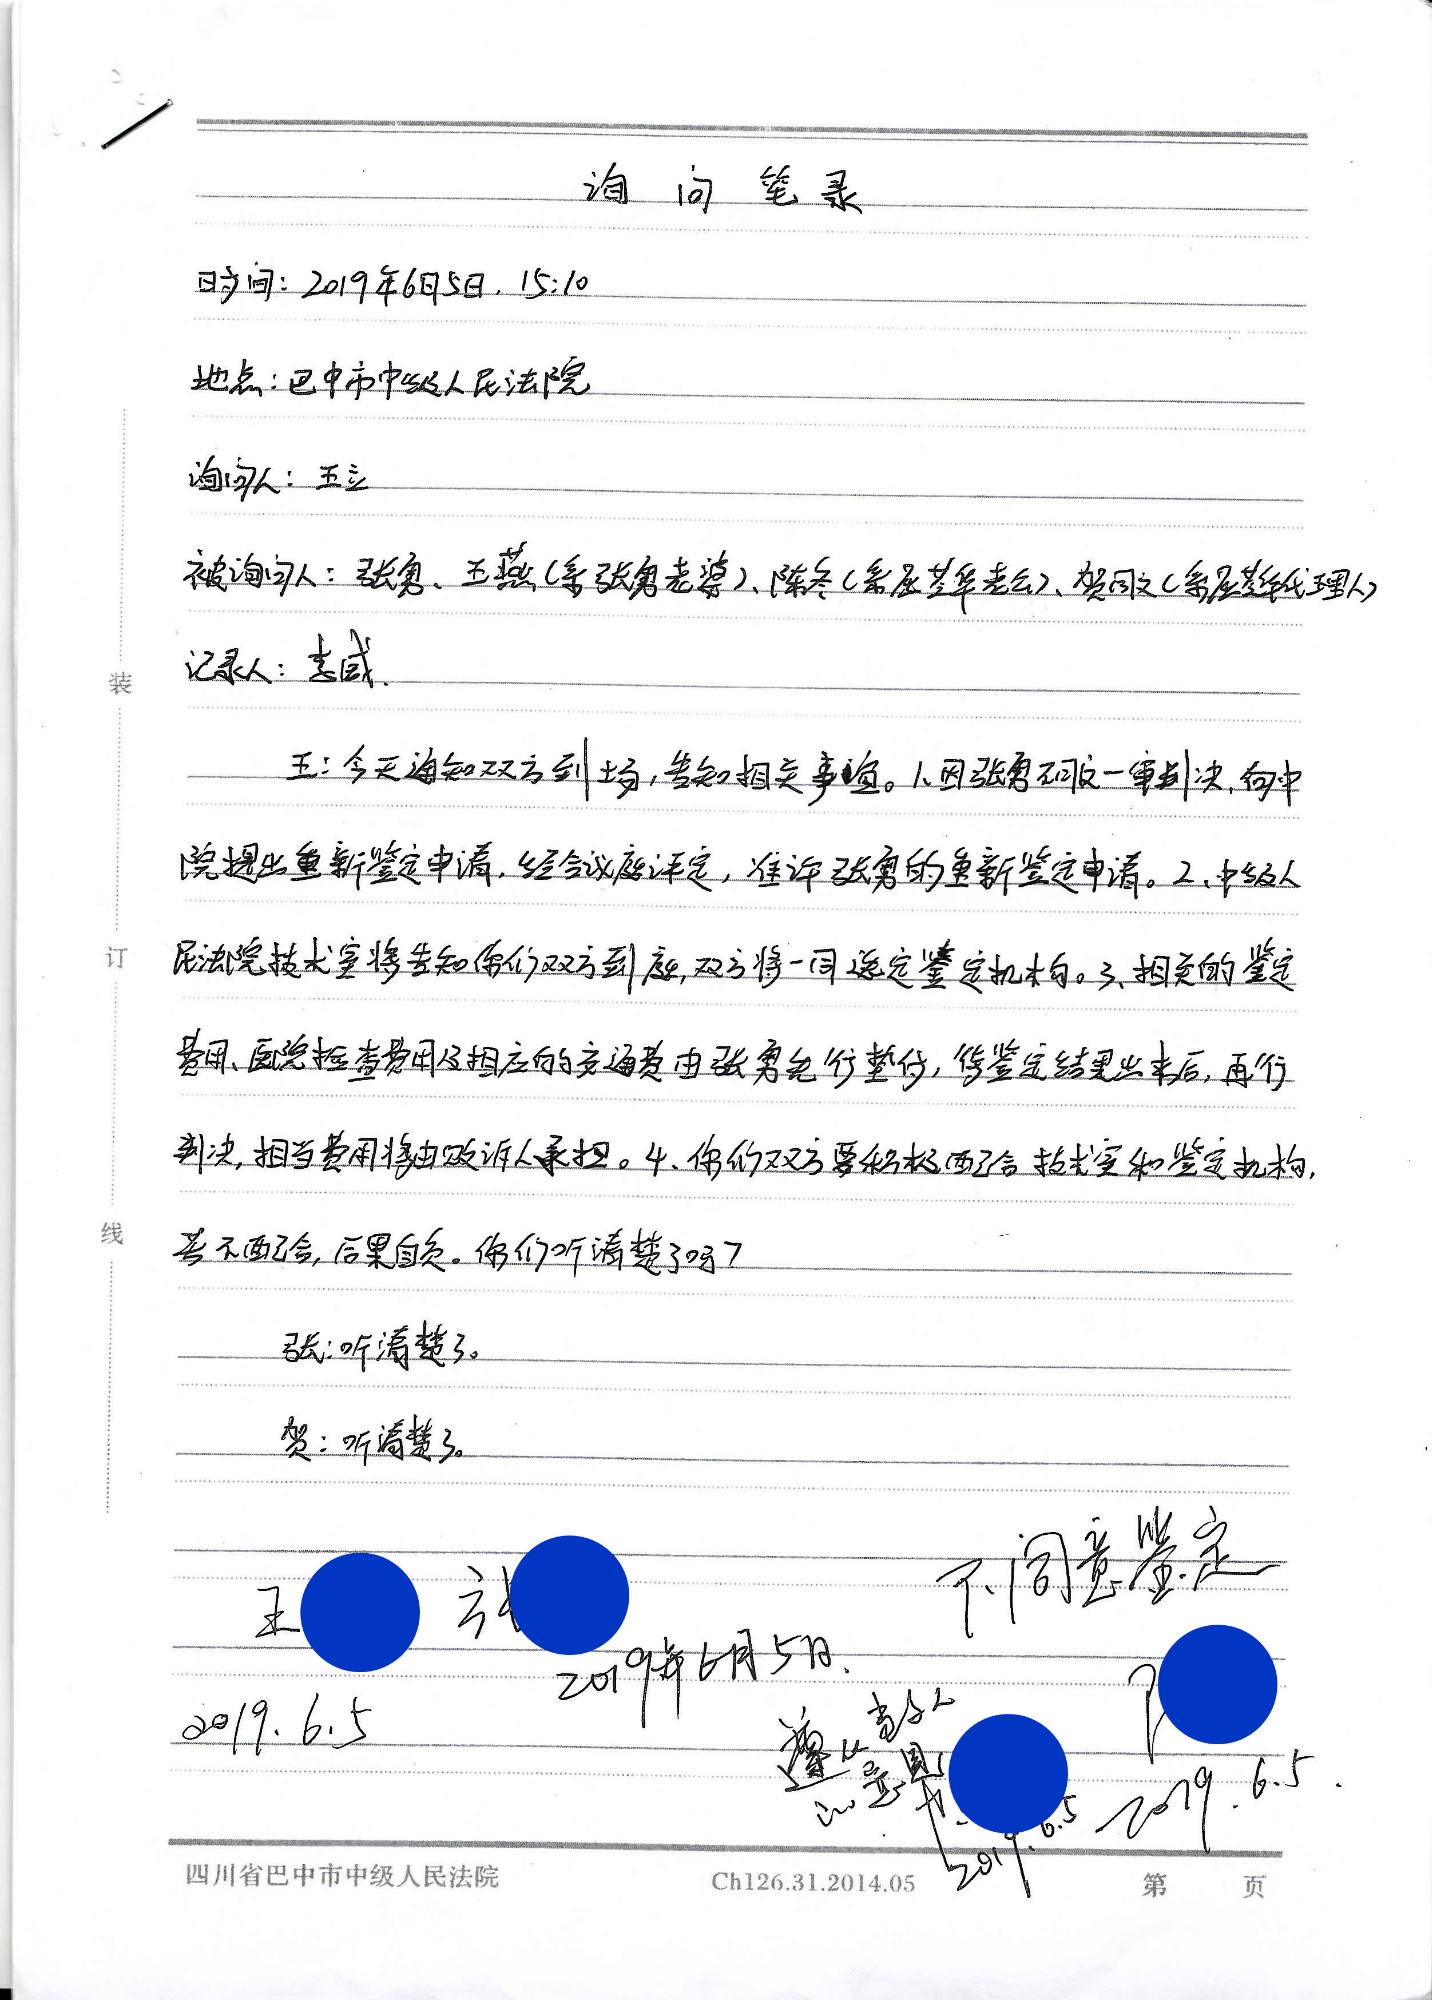 询问笔录
时间：2019年6月5日．15:10
地点：巴中市中级人民法院
询问人：王立
被询问人：张勇、王燕（系张勇老婆）、陈冬（系屈芝华老公）、贺同文（系屈芝华代理人）
记录人：李威．
王：今天通知双方到场，告知相关事宜。1、因张勇不同意一审判决，向中
院提出重新鉴定申请，经合议庭评定，准许张勇的重新鉴定申请。2、中级人
民法院技术室将告知你们双方到庭，双方将一同选定鉴定机构。3、相关的鉴定
费用、医院检查费用及相应的交通费由张勇先行垫付，待鉴定结果出来后，再行
判决，相当费用将由败诉人承担。4、你们双方要积极配合技术室和鉴定机构，
若不配合，后果自负。你们听清楚了吗？
张：听清楚了。
贺：听清楚了。
不同意鉴定
王
张
2019年6月5日．
2019.6.5
遵从当事人
意愿
2019.6.5
2019.6.5．
装
订
线
四川省巴中市中级人民法院 Ch126.31.2014.05 第 页